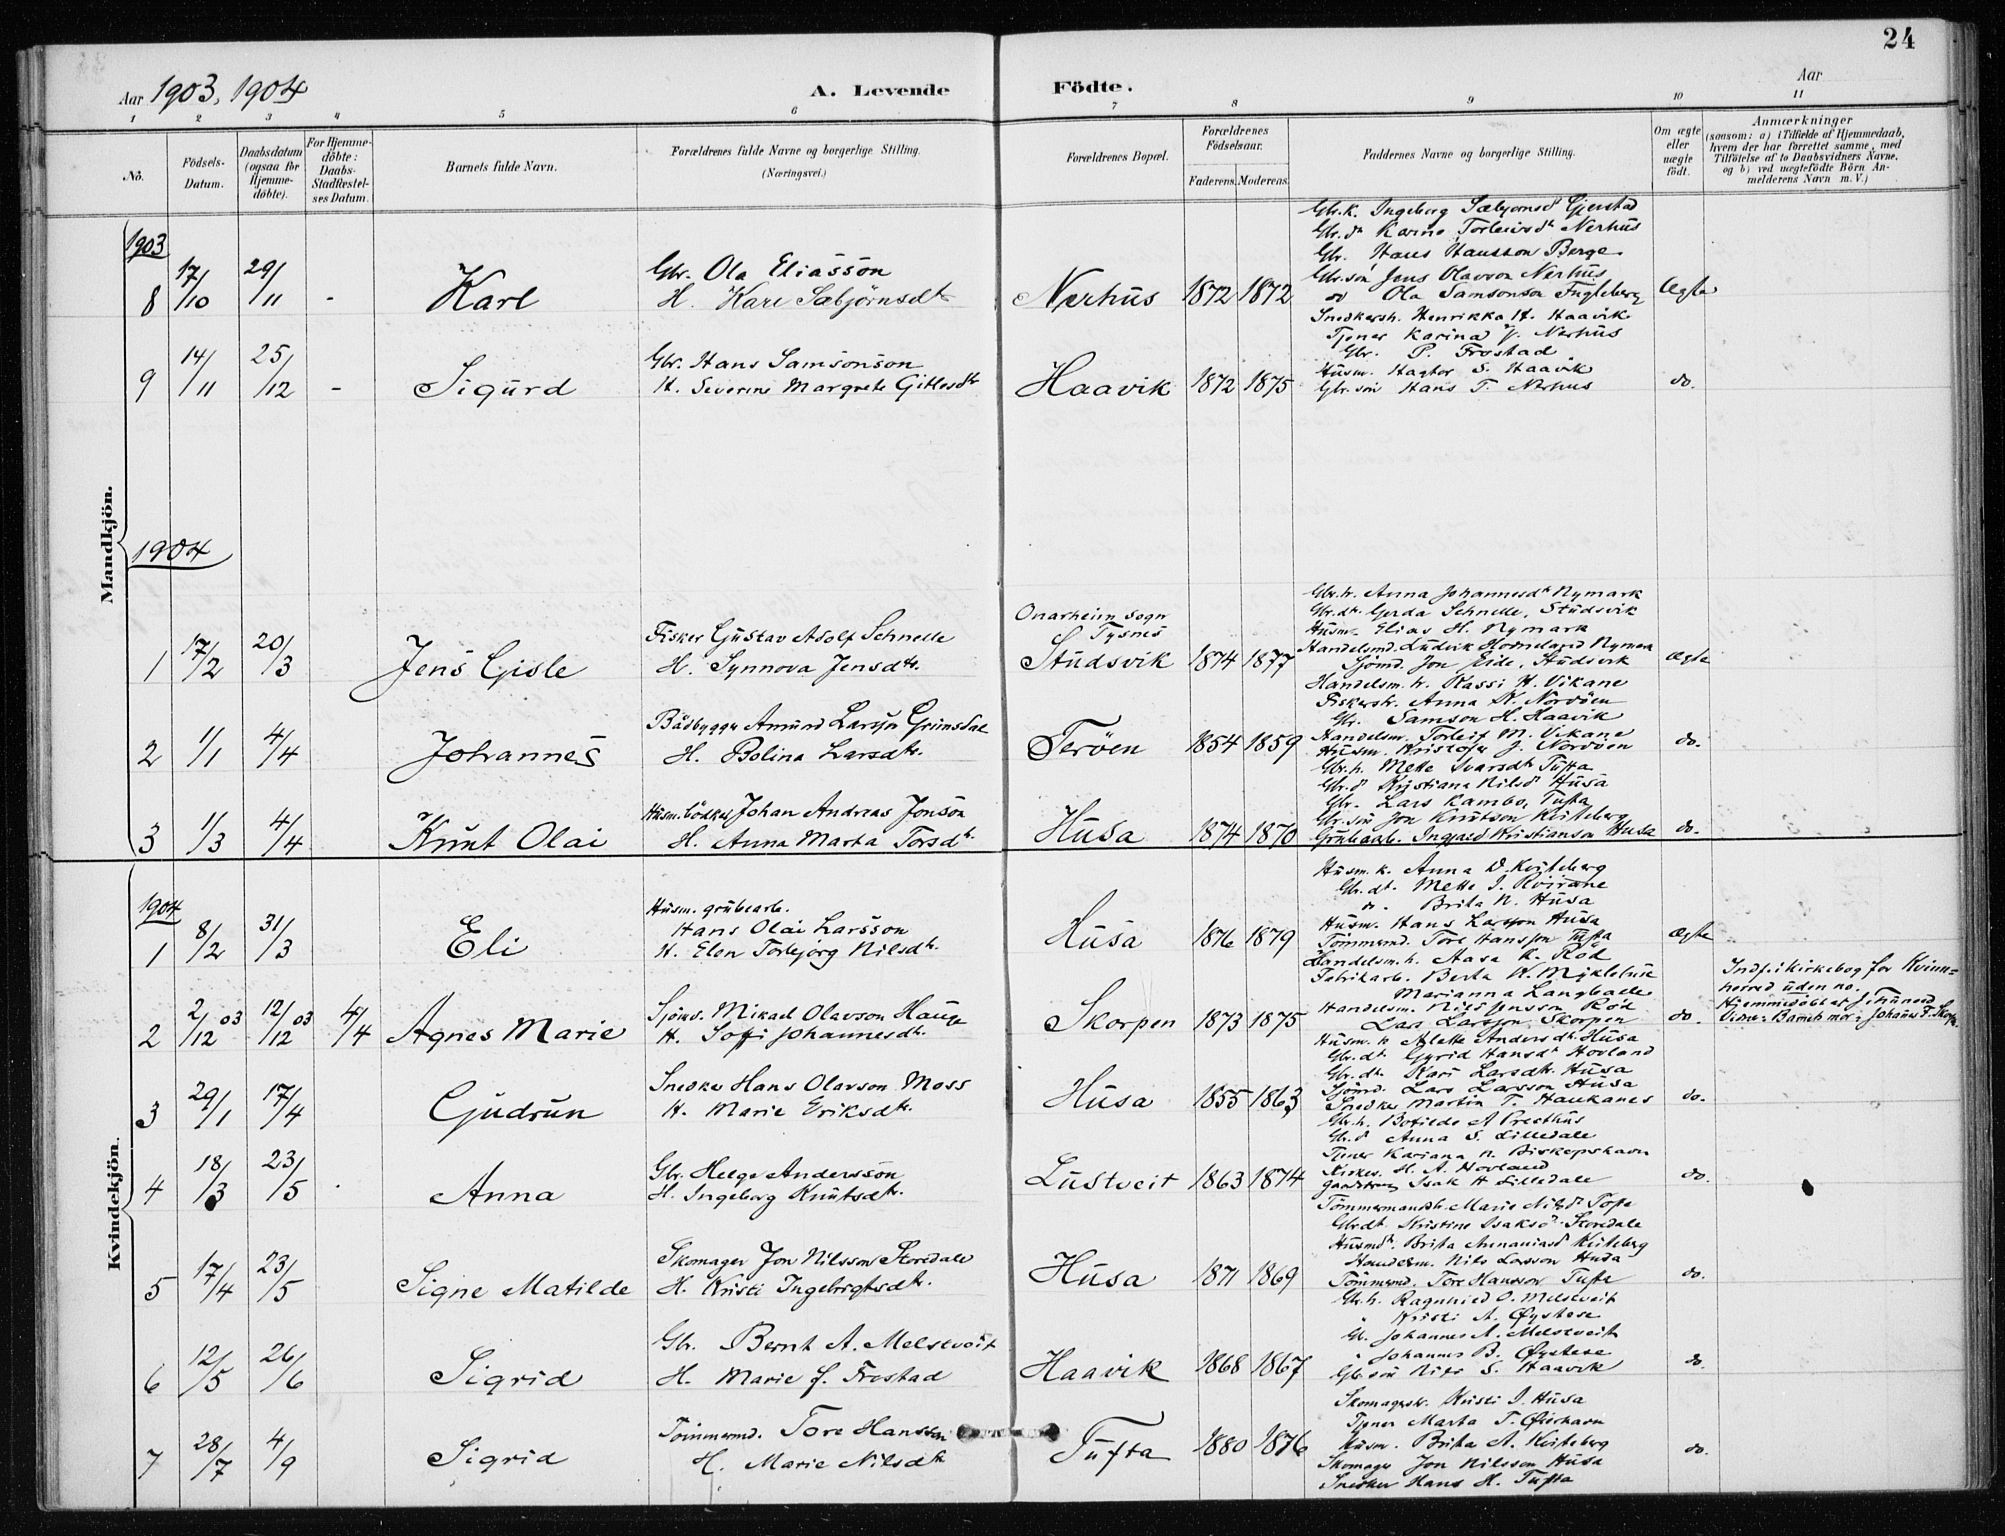 24
Aar 1903, 1904
A. Levende Födte.
Aar
1 2 3 4 5 6 7 8 9 10 11
No.
Födsels-Datum.
Daabsdatum (ogsaa for Hjemme-döbte).
For Hjemme-döbte: Daabs-Stadfæstel-ses Datum.
Barnets fulde Navn.
Forældrenes fulde Navne og borgerlige Stilling.
(Næringsvei.)
Forældrenes Bopæl.
Forældrenes Födselsaar.
Faderens. Moderens.
Faddernes Navne og borgerlige Stilling.
Om ægte eller uægte födt.
Anmærkninger
(saasom: a) i Tilfælde af Hjemmedaab,
hvem der har forrettet samme, med
Tilföielse af to Daabsvidners Navne,
og b) ved uægtefödte Börn An-
melderens Navn m. V.)
Mandkjön.
1903
8 17/10 29/11 - Karl
Gbr. Ola Eliasson
H. Kari Sæbjörnsdt
Nerhus 1872 1872
Gbr.k. Ingeborg Sæbjornsd Gjerstad
Gbr.dt Karine Torleivsdt Nerhus
Gbr. Hans Hansson Berge
Gbr.sön Jens Olavson Nerhus
do Ola Samsonson Fugleberg
Ægte
9 14/11 25/12 - Sigurd
Gbr. Hans Samsonson
H. Severine Margrete Gitlesdtr
Haavik 1872 1875
Snedkerh. Henrikka H. Haavik
Tjener Karina J. Nerhus
Gbr. P. Frostad
Husm. Hagtor S. Haavik
Gbr.sön Hans T. Nerhus
do.
1904
1 17/2 20/3 Jens Gisle
Fisker Gustav Adolf Schnelle
H. Synnova Jensdtr.
Onarheim sogn
Tysnes
Studsvik 1874 1877
Gbr.h. Anna Johannesdtr Nymark
Gbr.dt. Gerda Schnelle, Studsvik
Husm. Elias H. Nymark
Handelsmd. Ludvik
Sjömd. Jon Eide, Studsvik
ægte
2 1/1 4/4 Johannes
Bådbygger Amund Larsson Grimsdal
H. Bolina Larsdtr.
Teröen 1854 1859
Handelsm. h. Rassi H. Vikane
Fiskerh. Anna K. Nordöen
Gbr. Samson H. Haavik
Handelsm. Torleif M. Vikane
Husm. Kristofer J. Nordöen
do.
3 1/3 4/4 Knut Olai
Husm. bödker Johan Andreas Jonson
H. Anna Marta Torsdt.
Husa 1874 1870
Gbr.h. Mette Ivarsdt Tufta
Gbr.d Kristiana Nilsd Husa
Gbr. Lars Rambo, Tufta
Gbr.sön Jon Knutson Kviteberg
Grubearb. Ingvald Kristianson Husa
do.
Kvindekjön.
1904
1 8/2 31/3 Eli
Husm. grubearb.
Hans Olai Larsson
H. Elen Torbjörg Nilsdt.
Husa 1876 1879
Husm. k. Anna D. Kviteberg
Gbr. dt. Mette I.
do. Brita N. Husa
Husm. Hans Larsson Husa
Tömmermd. Tore Hansson Tufta
ægte
2 2/12 03 12/12 03 4/4 Agnes Marie
Sjöm. Mikael Olavson Hauge
H. Soffi Johannesdt.
Skorpen 1873 1875
Handelsm. h. Aasa K. Röd
Fabrikarb. Berta W. Myklebust
Marianna Langballe
Handelsm. Nils Jensson Röd
Lars Larsson Skorpen
do.
Indf. i Kirkebog for Kvinn=
herred uden no.
Hjemmedöbt af
Vidner: Barnets mor, Johans F. Skorpe
3 29/1 17/4 Gudrun
Snedker Hans Olavson Moss
H. Marie Eriksdtr.
Husa 1855 1863
Husm. k. Alette Andersdt. Husa
Gbr. dt. Gyrid Hansdt Hovland
Gbr. dt. Kari Larsdtr. Husa
Sjömd. Lars Larsson Husa
Snedker Martin T. Haukanes
do.
4 18/3 23/5 - Anna
Gbr. Helge Andersson
H. Ingeborg Knutsdtr.
Lustveit 1863 1874
Gbr.h. Botilde A Presthus
Gbr.d Anna S. Lilledale
Tjener Kariana N. Biskopshavn
H. A. Hovland
Isak H Lilledale
do.
5 17/4 23/5 Signe Matilde
Skomager Jon Nilsson Storedale
H. Kristi Ingebrigtsdt.
Husa 1871 1869
Tömmermandsh. Marie Nilsdt Tofte
Gbr.dt. Kristine Isaksd. Storedale
Husmdt. Brita Ananiasdt Kviteberg
Handelsm. Nils Larsson Husa
Tömmermd. Tore Hansson Tufta
do.
6 12/5 26/6 Sigrid
Gbr. Bernt A. Melstveit
H. Marie J. Frostad
Haavik 1868 1867
Gbr. h. Ragnhild O. Melstveit
" Kristi A. Øystese
Gbr. Johannes A. Melstveit
" Johannes B. Øystese
Gbr. sön Nils S. Haavik
do.
7 28/7 4/9 Sigrid
Tömmermd. Tore Hansson
H. Marie Nilsdtr
Tufta 1880 1876
Skomagerh. Kristi I. Husa
Tjener Marta T.
Husm. Brita A. Kviteberg
Skomager Jon Nilsson Husa
Snedker Hans H. Tufta
do.